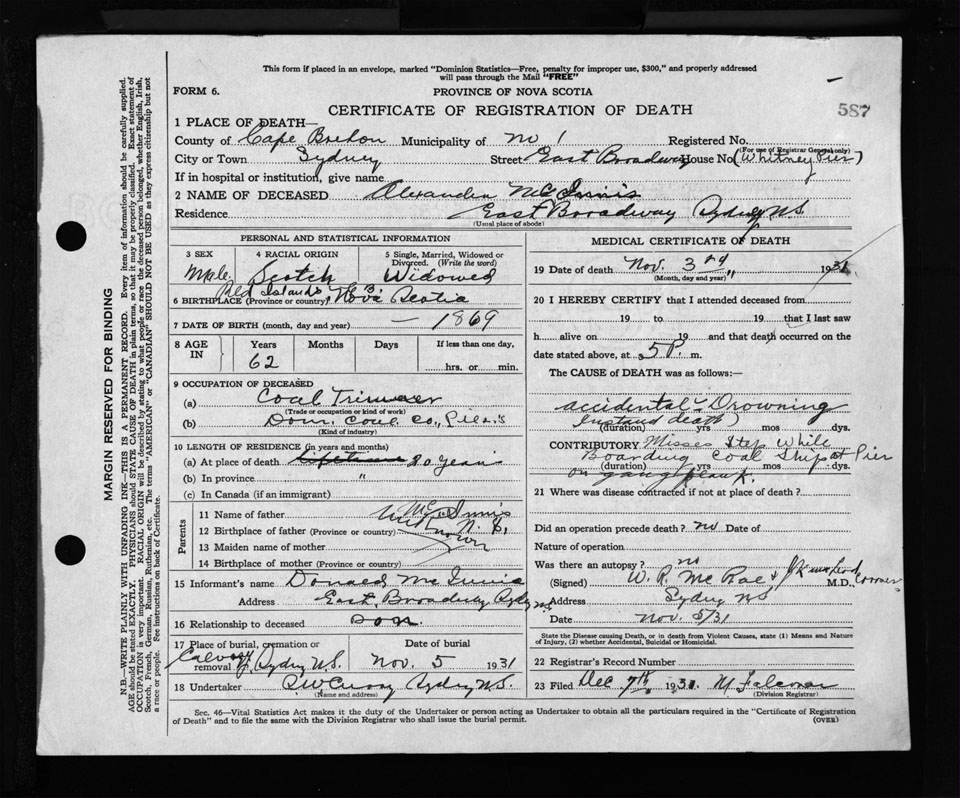 This form if placed in an envelope, marked "Dominion Statistics—Free, penalty for improper use, $300," and properly addressed
will pass through the Mail "FREE"
FORM 6.
PROVINCE OF NOVA SCOTIA
587
CERTIFICATE OF REGISTRATION OF DEATH
1 PLACE OF DEATH—
County of Cape Breton Municipality of No 1 Registered No.
(For use of Registrar General only)
City or Town Sydney Street East Broadway House No (Whitney Pier)
If in hospital or institution, give name
2 NAME OF DECEASED Alexander McInnis
Residence East Broadway Sydney NS
(Usual place of abode)
PERSONAL AND STATISTICAL INFORMATION
3 SEX 4 RACIAL ORIGIN 5 Single, Married, Widowed or Divorced. (Write the word)
Male Scotch Widowed
Red Islands
6 BIRTHPLACE (Province or country) Nova Scotia
7 DATE OF BIRTH (month, day and year) — 1869
8 AGE IN Years Months Days If less than one day,
62 hrs. or min.
9 OCCUPATION OF DECEASED
(a) Coal Trimmer
(Trade or occupation or kind of work)
(b) Dom. Coal Co., Piers
(Kind of industry)
10 LENGTH OF RESIDENCE (in years and months)
(a) At place of death lifetime 20 years
(b) In province "
(c) In Canada (if an immigrant)
Parents
11 Name of father McInnis
12 Birthplace of father (Province or country) N. S,
Unknown
13 Maiden name of mother
14 Birthplace of mother (Province or country)
15 Informant's name Donald McInnis
Address East Broadway Sydney NS
16 Relationship to deceased Son.
17 Place of burial, cremation or removal Date of burial
Calvary, Sydney N.S. Nov. 5 1931
18 Undertaker Sydney N.S.
(Name and address)
MEDICAL CERTIFICATE OF DEATH
19 Date of death Nov. 3rd " 1931
(Month, day and year)
20 I HEREBY CERTIFY that I attended deceased from
19 to 19 that I last saw
h alive on 19 and that death occurred on the
date stated above, at 5 P. m.
The CAUSE of DEATH was as follows:—
accidental - Drowning
(instant death)
(duration) yrs mos dys.
CONTRIBUTORY Misses Step While
Boarding Coal Ship at Pier
(duration) yrs mos dys.
on gang plank.
21 Where was disease contracted if not at place of death?
Did an operation precede death? no Date of
Nature of operation
Was there an autopsy? no
(Signed) W. R. McRae M.D., Coroner
Address Sydney NS
Date Nov. 5/31
State the Disease causing Death, or in death from Violent Causes, state (1) Means and Nature
of Injury, (2) whether Accidental, Suicidal or Homicidal.
22 Registrar's Record Number
23 Filed Dec 7th 1931. M Falconer
(Division Registrar)
Sec. 46—Vital Statistics Act makes it the duty of the Undertaker or person acting as Undertaker to obtain all the particulars required in the "Certificate of Registration
of Death" and to file the same with the Division Registrar who shall issue the burial permit.
(OVER)
MARGIN RESERVED FOR BINDING
N.B.—WRITE PLAINLY WITH UNFADING INK—THIS IS A PERMANENT RECORD. Every item of information should be carefully supplied.
AGE should be stated EXACTLY. PHYSICIANS should STATE CAUSE OF DEATH in plain terms, so that it may be properly classified. Exact statement of
OCCUPATION is very important. RACIAL ORIGIN will be described by stating to what people or race the deceased person belonged, whether English, Irish,
Scotch, French, German, Russian, Ruthenian, etc. The terms "AMERICAN" or "CANADIAN" SHOULD NOT BE USED as they express citizenship but not
a race or people. See instructions on back of Certificate.